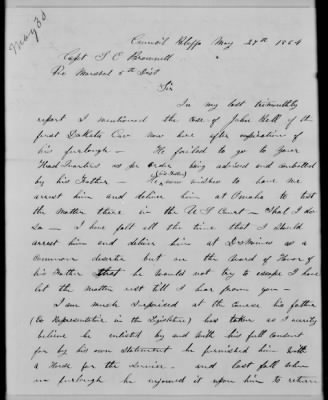 May 30
Council Bluffs May 27th 1864
Capt S E Brownell
Pro Marshal 5th Dist
Sir
In my last trimonthly
report I mentioned the case of John Bell of the
first Dakota Cav now here after expiration of
his furlough — He failed to go to your
Head Quarters as per order being advised and
by his Father — He (his Father) now wishes to have me
arrest him and deliver him at Omaha to test
the matter there in the U S Court — Shal I do
So — I have felt all the time that I should
arrest him and deliver him at DsMoines as a
common deserter but on the word of Honor of
his Mother that he would not try to escape I have
let the matter rest till I hear from you —
I am much surprised at the course his father
(Co Representative in the Legislature) has taken as I surely
believe he enlisted by and with his full consent
for by his own statement he furnished him with
a Horse for the service — and last fall when
on furlough he enjoined it upon him to return